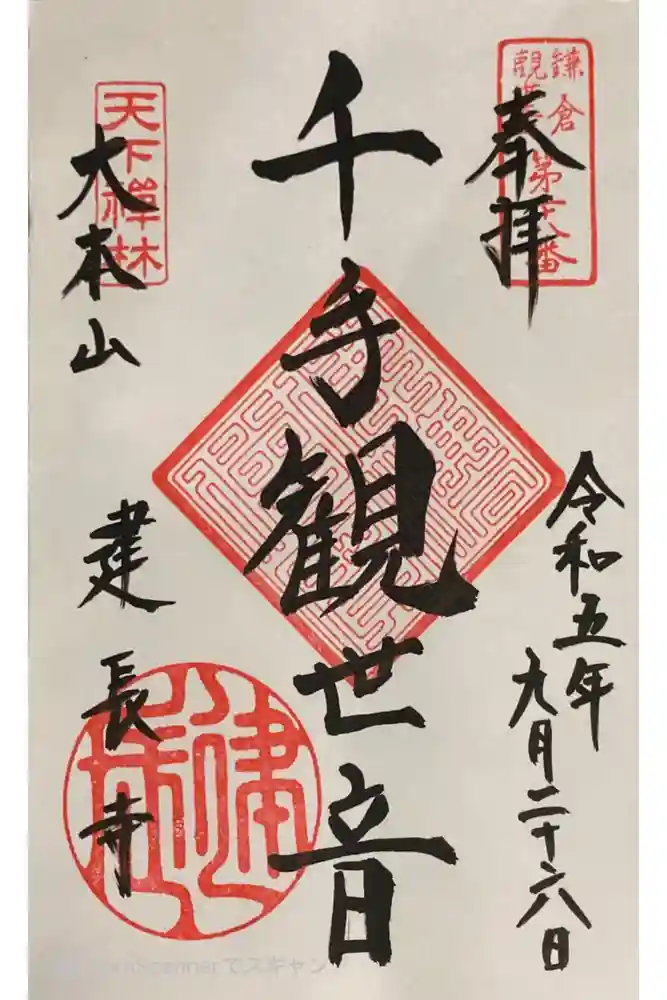 奉拝
鎌倉
観音
第廿八番
令和五年
九月二十六日
千手観世音
天下禅林
大本山
建長寺
Scannerでスキャン